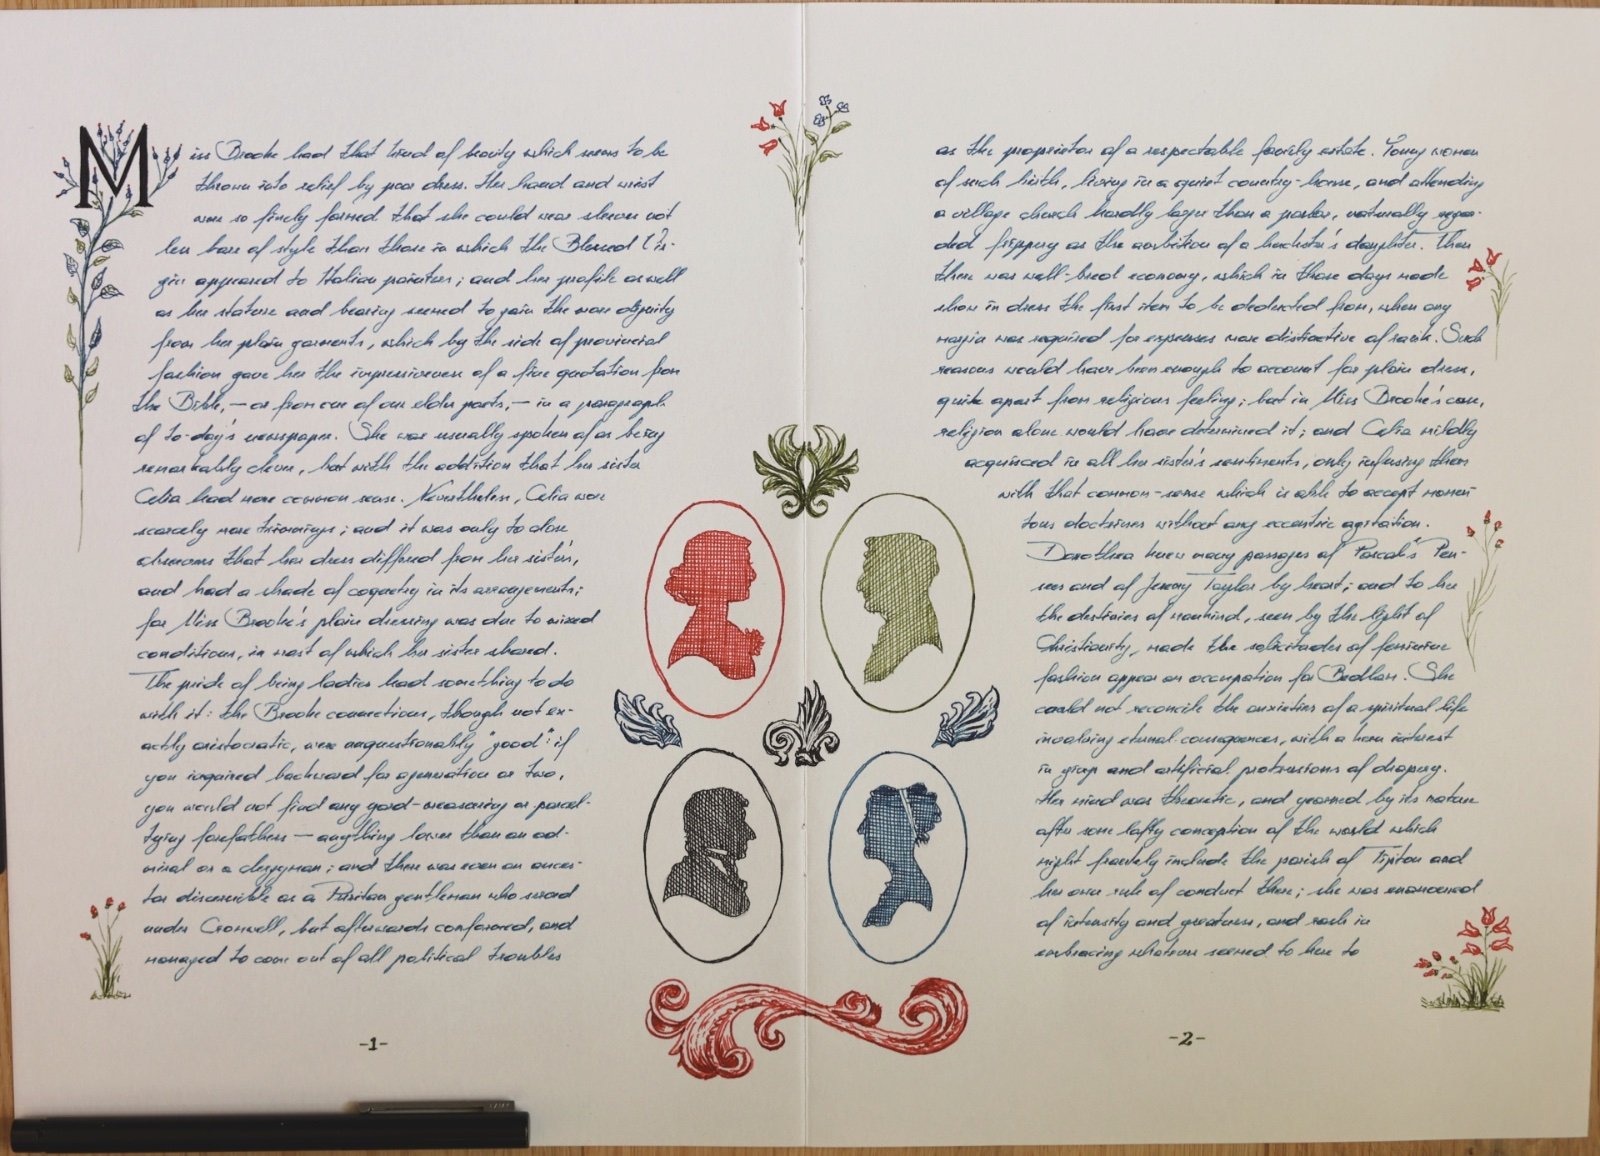 Miss Brooke had that kind of beauty which seems to be
thrown into relief by poor dress. Her hand and wrist
were so finely formed that she could wear sleeves not
less bare of style than those in which the Blessed Vir-
gin appeared to Italian painters; and her profile as well
as her stature and bearing seemed to gain the more dignity
from her plain garments, which by the side of provincial
fashion gave her the impressiveness of a fine quotation from
the Bible, — or from one of our elder poets, — in a paragraph
of to-day's newspaper. She was usually spoken of as being
remarkably clever, but with the addition that her sister
Celia had more common sense. Nevertheless, Celia wore
scarcely more trimmings; and it was only to close
observers that her dress differed from her sister's,
and had a shade of coquetry in its arrangements;
for Miss Brooke's plain dressing was due to mixed
conditions, in most of which her sister shared.
The pride of being ladies had something to do
with it: the Brooke connections, though not ex-
actly aristocratic, were unquestionably "good": if
you inquired backward for a generation or two,
you would not find any yard-measuring or parcel-
tying forefathers — anything lower than an ad-
miral or a clergyman; and there was even an ances-
tor discernible as a Puritan gentleman who served
under Cromwell, but afterwards conformed, and
managed to come out of all political troubles
-1-
as the proprietor of a respectable family estate. Young women
of such birth, living in a quiet country-house, and attending
a village church hardly larger than a parlor, naturally regar-
ded frippery as the ambition of a huckster's daughter. Then
there was well-bred economy, which in those days made
show in dress the first item to be deducted from, when any
margin was required for expenses more distinctive of rank. Such
reasons would have been enough to account for plain dress,
quite apart from religious feeling; but in Miss Brooke's case,
religion alone would have determined it; and Celia mildly
acquiesced in all her sister's sentiments, only infusing them
with that common-sense which is able to accept momen-
tous doctrines without any eccentric agitation.
Dorothea knew many passages of Pascal's Pen-
sees and of Jeremy Taylor by heart; and to her
the destinies of mankind, seen by the light of
Christianity, made the solicitudes of feminine
fashion appear an occupation for Bedlam. She
could not reconcile the anxieties of a spiritual life
involving eternal consequences, with a keen interest
in gimp and artificial protrusions of drapery.
Her mind was theoretic, and yearned by its nature
after some lofty conception of the world which
might frankly include the parish of Tipton and
her own rule of conduct there; she was enamoured
of intensity and greatness, and rash in
embracing whatever seemed to her to
-2-